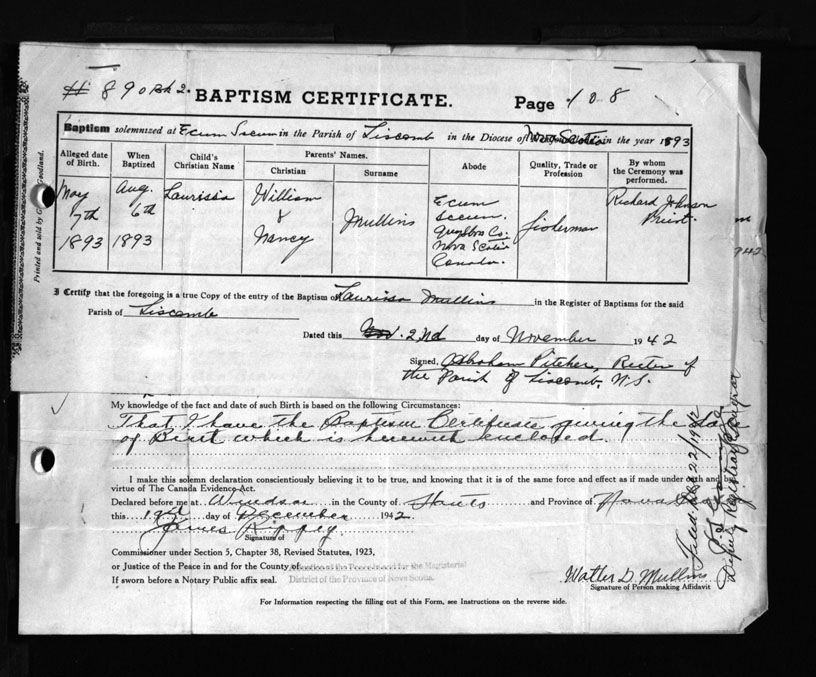 # 890 Bk 2. BAPTISM CERTIFICATE. Page 108
Baptism solemnized at Ecum Secum in the Parish of Liscomb in the Diocese of Nova Scotia in the year 1893
Alleged date of Birth. When Baptized Child's Christian Name Parents' Names. Christian Surname Abode Quality, Trade or Profession By whom the Ceremony was performed.
May 7th 1893
Aug. 6th 1893
Laurissa
William & Nancy
Mullins
Ecum Secum. Guysboro Co. Nova Scotia Canada.
fisherman
Richard Johnson Priest.
Printed and sold by
I Certify that the foregoing is a true Copy of the entry of the Baptism of Laurissa Mullins in the Register of Baptisms for the said
Parish of Liscomb
Dated this Nov. 2nd day of November 1942
Signed, Abraham Pitcher, Rector of
the Parish of Liscomb, N.S.
My knowledge of the fact and date of such Birth is based on the following Circumstances:
That I have the Baptism Certificate giving the date
of Birth which is herewith enclosed.
I make this solemn declaration conscientiously believing it to be true, and knowing that it is of the same force and effect as if made under oath and by
virtue of The Canada Evidence Act.
Declared before me at Windsor in the County of Hants and Province of Nova
this day of December 1942
James Rippey
Signature of
Commissioner under Section 5, Chapter 38, Revised Statutes, 1923,
or Justice of the Peace in and for the County of
If sworn before a Notary Public affix seal. District of the Province of Nova Scotia.
Walter D. Mullins
Signature of Person making Affidavit
For Information respecting the filling out of this Form, see Instructions on the reverse side.
Deputy Registrar General